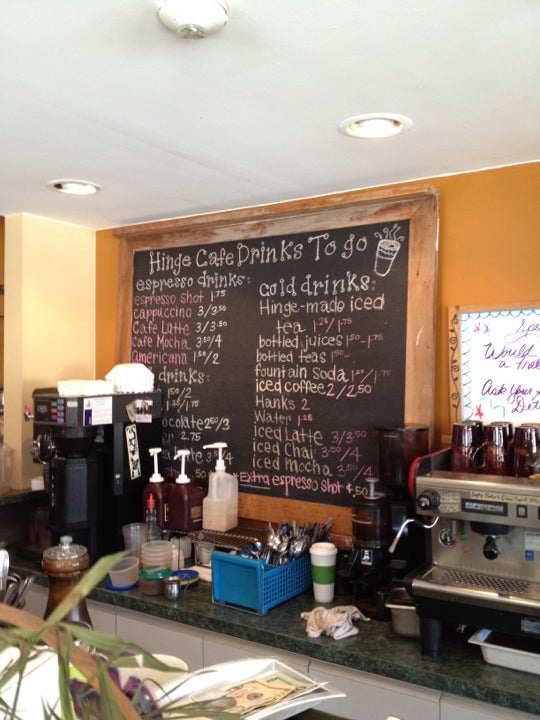 Hinge Cafe Drinks To go
espresso drinks:
espresso shot 1.75
cappuccino 3/3.50
Cafe Latte 3/3.50
Cafe Mocha 3.50/4
Americana 1.50/2
drinks:
1.50/2
1.25/1.75
2.50/3
2.75
cold drinks:
Hinge-made iced
tea 1.25/1.75
bottled juices 1.50-1.75
bottled teas 1.50-
fountain soda 1.25/1.75
iced coffee 2/2.50
Hanks 2
Water 1.25
iced Latte 3/3.50
iced Chai 3.50/4
iced mocha 3.50/4
+Extra espresso shot +.50
Would
a
Ask Your